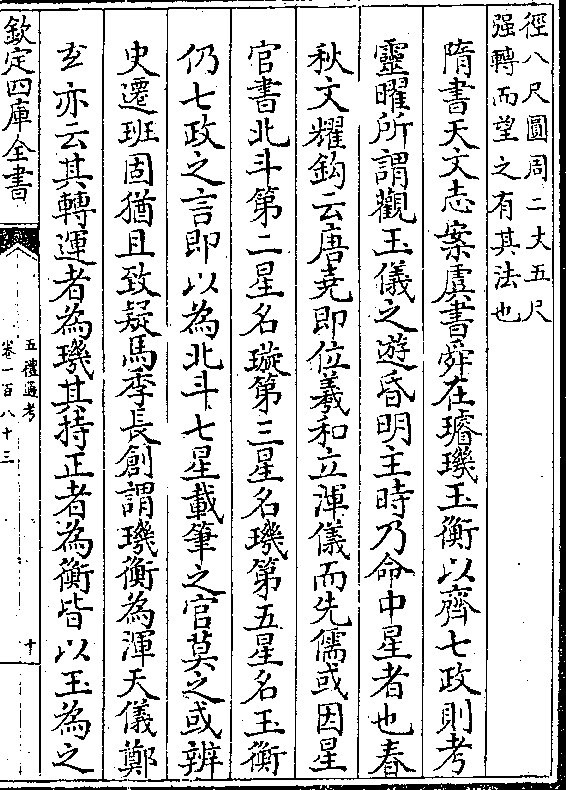 徑八尺圓周二丈五尺
强轉而望之有其法也
隋書天文志案虞書舜在璿璣玉衡以齊七政則考
靈曜所謂觀玉儀之遊昏明主時乃命中星者也春
秋文耀鈎云唐尭即位羲和立渾儀而先儒或因星
官書北斗第二星名璇第三星名璣第五星名玉衡
仍七政之言即以為北斗七星載筆之官莫之或辨
史遷班固猶且致疑馬季長創謂璣衡為渾天儀鄭
𤣥亦云其轉運者為璣其持正者為衡皆以玉為之
欽定四庫全書
五禮通考
卷一百八十三
十